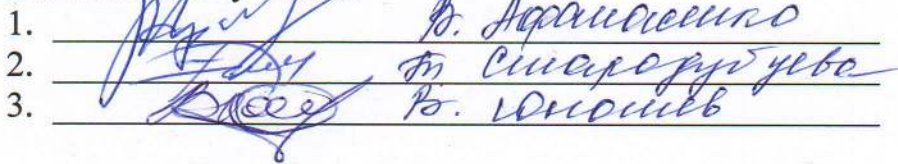 1. В. Афанасенко
2. Т Стародубцева
3. В. Юношев